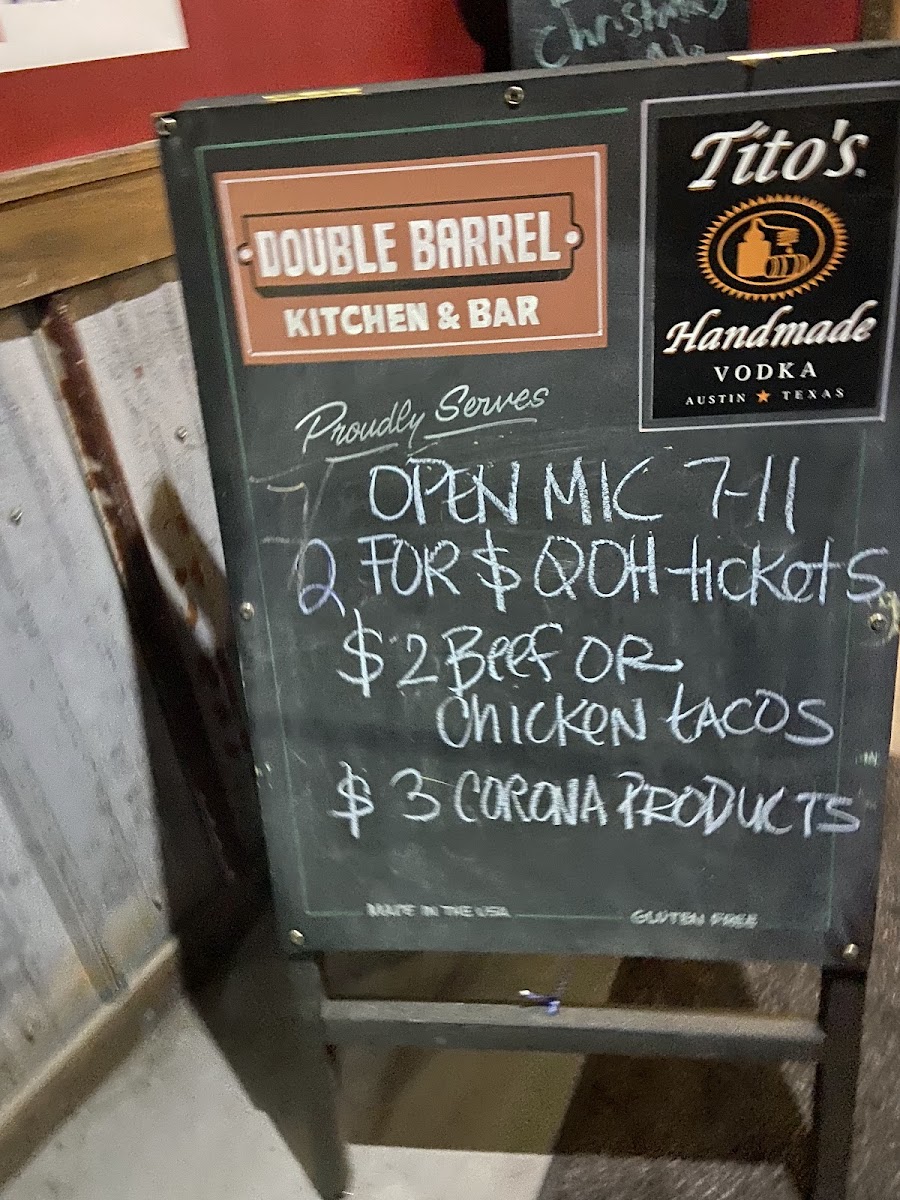 Christmas
Ale
DOUBLE BARREL
KITCHEN & BAR
Tito's
Handmade
VODKA
AUSTIN ★ TEXAS
Proudly Serves
OPEN MIC 7-11
2 FOR $ QOH tickets
$2 Beef OR
Chicken tacos
$3 CORONA PRODUCTS
MADE IN THE USA
GLUTEN FREE